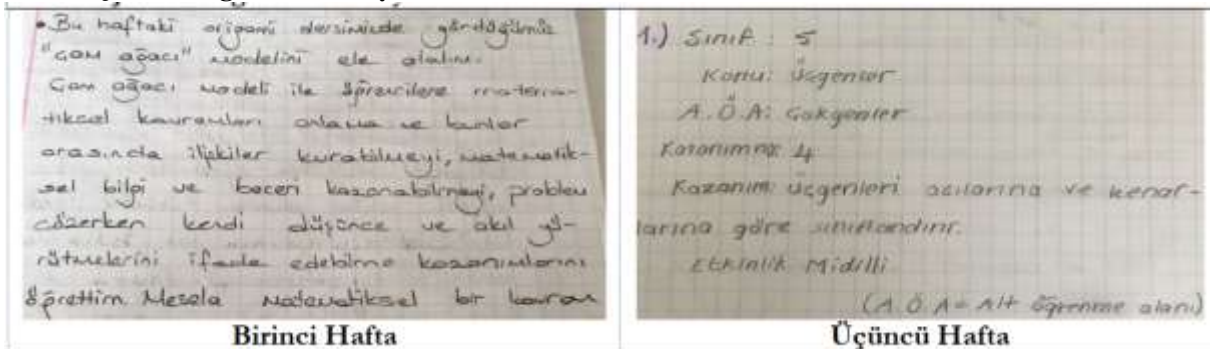 • Bu haftaki origami dersimizde gördüğümüz
"çam ağacı" modelini ele alalım.
Çam ağacı modeli ile öğrencilere matema-
tiksel kavramları anlama ve bunlar
arasında ilişkiler kurabilmeyi, matematik-
sel bilgi ve beceri kazanabilmeyi, problem
çözerken kendi düşünce ve akıl yü-
rütmelerini ifade edebilme kazanımlarını
öğrettim. Mesela matematiksel bir kavram
Birinci Hafta
1.) Sınıf : 5
Konu: Üçgenler
A.Ö.A: Çokgenler
Kazanım no: 4
Kazanım: Üçgenleri açılarına ve kenar-
larına göre sınıflandırır.
Etkinlik Midilli
(A.Ö.A = Alt öğrenme alanı)
Üçüncü Hafta